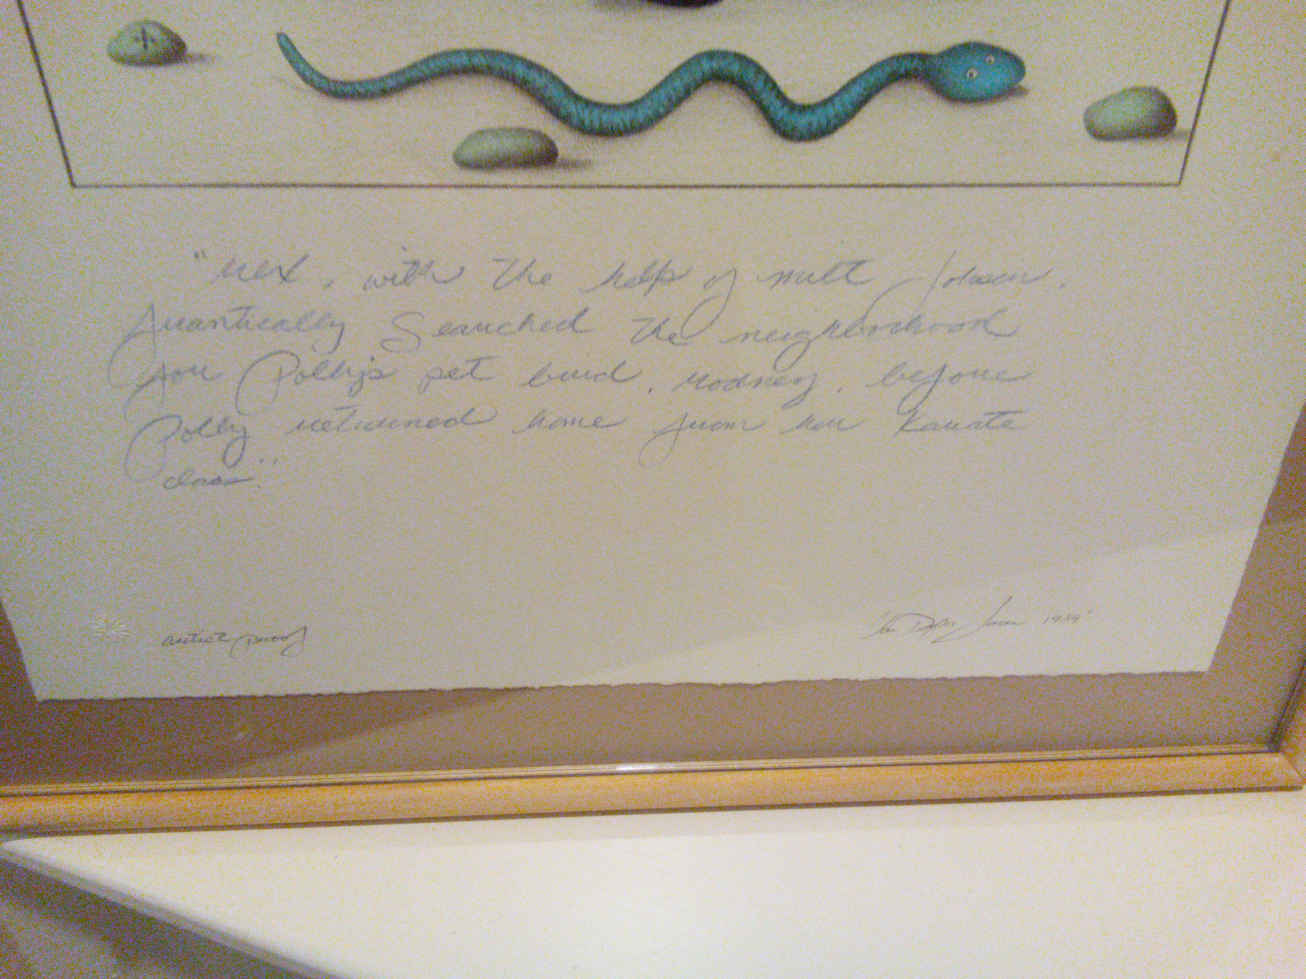 "Rex, with the help of milt Johson,
frantically Searched the neighborhood
for Polly's pet bird, rodney, before
Polly returned home from her karate
class."
artist proof
1989